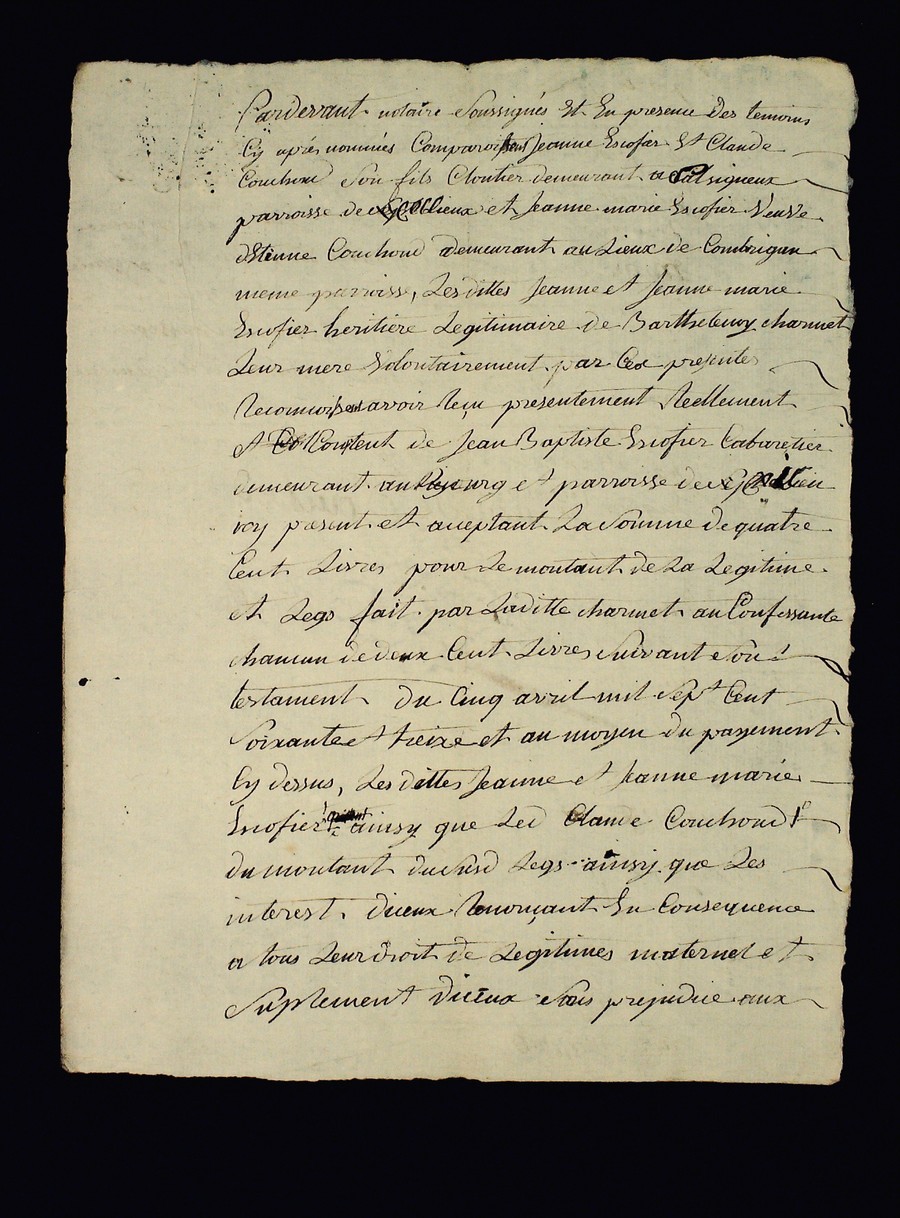 Pardevant notaire Soussignés Et En presence Des temoins
Cy aprés nommés Comparoissent Jeanne Escofier Et Claude
Couchoud Son fils Cloutier demeurant a Salsigneux
parroisse de et Jeanne marie Escofier Veuve
dEtienne Couchoud demeurant au Lieux de Combrigan
meme parroisse, Les dittes Jeanne et Jeanne marie
Escofier heritiere Legitimaire de Barthelemy charmet
Leur mere Volontairement par Ces presentes
Reconnoissent avoir Reçu presentement Reellement
Et Contant de Jean Baptiste Escofier Cabaretier
demeurant au Bourg et parroisse de
icy present et aceptant La Somme de quatre
Cent Livres pour Le montant de La Legitime
et Legs fait par Laditte charmet au Confessante
chamun de deux Cent Livres Suivant Son
testament Du Cinq avril mil Sept Cent
Soixante et treize et au moyen du payement
Cy dessus, Les dittes Jeanne et Jeanne marie
Escofier quittent ainsy que Led Claude Couchoud
du montant du susd Legs ainsy que Les
interest diceux Renonçant En Consequence
a tous Leur droit de Legitimes maternel et
Suplement diceux Sans prejudice aux